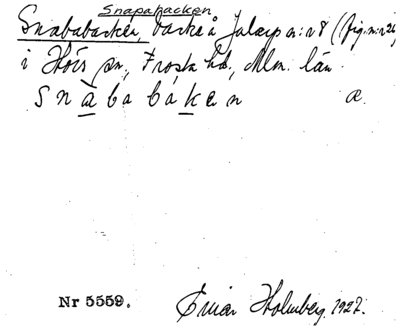 Snapabacken
Snababacken, backe å Jularp n:r 8 (fig. n:r 2)
i Hörs sn, Frosta hd, Mlm. län.
Snàbabákan æ.
Nr 5559. Einar Holmberg. 1927.